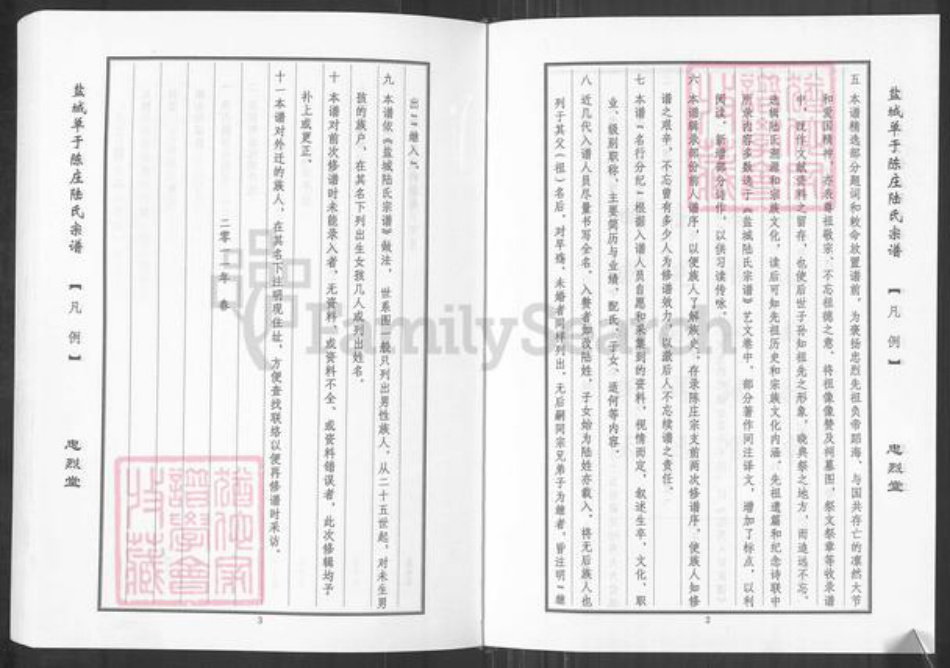 盐城单于陈庄陆氏宗谱 【凡例】 忠烈堂
五 本谱精选部分题词和敕命放置谱前,为褒扬忠烈先祖负帝蹈海、与国共存亡的凛然大节
和爱国精神,亦表尊祖敬宗、不忘祖德之意。将祖像像赞及祠墓图,祭文祭章等收录谱
中,既作文献资料之留存,也使后世子孙知祖先之形象,晓典祭之地方,而追远不忘。
选辑陆氏渊源和宗族文化,读后可知先祖历史和宗族文化内涵。先祖遗篇和纪念诗联中
所录内容多数选于《盐城陆氏宗谱》艺文卷中,部分著作间注译文,增加了标点,以利
阅读。新增部分诗作,以供习读传咏。
六 本谱辑录部份前人谱序,以便族人了解族史;存录陈庄宗支前两次修谱序,使族人知修
谱之艰辛,不忘曾有多少人为修谱效力,以激后人不忘续谱之责任。
七 本谱“名行分纪”根据入谱人员自愿和采集到的资料,视情而定,叙述生卒,文化、职
业、级别职称、主要简历与业绩,配氏、子女、适何等内容。
八 近几代入谱人员尽量书写全名。入赘者如改陆姓,子女始为陆姓亦载入。将无后族人也
列于其父(祖)名后,对早殇、未婚者同样列出。无后嗣同宗兄弟子为继者,皆注明“继
出”“继入”。
九 本谱依《盐城陆氏宗谱》做法,世系图一般只列出男性族人,从二十五世起,对未生男
孩的族户,在其名下列出生女孩几人或列出姓名。
十 本谱对前次修谱时未能录入者,无资料、或资料不全、或资料错误者,此次修辑均予
补上或更正。
十一 本谱对外迁的族人,在其名下注明现住址,方便查找联络以便再修谱时采访。
二零一一年 春
盐城单于陈庄陆氏宗谱 【凡例】 忠烈堂
2
3
FamilySearch